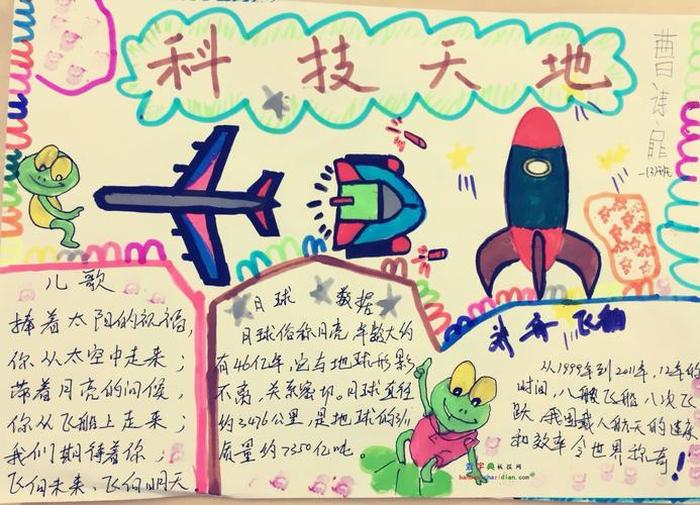 科技天地
曹诗
一13班
儿歌
捧着太阳的祝福,
你从太空中走来;
带着月亮的问候,
你从飞船上走来;
我们期待着你;
飞向未来、飞向明天
月球 数据
月球俗称月亮,年数大约
有46亿年,它与地球形影
不离,关系密切。月球直径
约3476公里,是地球的3/11
质量约7350亿吨。
神舟飞船
从1999年到2011年,12年的
时间,八艘飞船八次飞
跃,我国载人航天的速度
和效率令世界称奇!
查字典板报网
banbao.chazidian.com